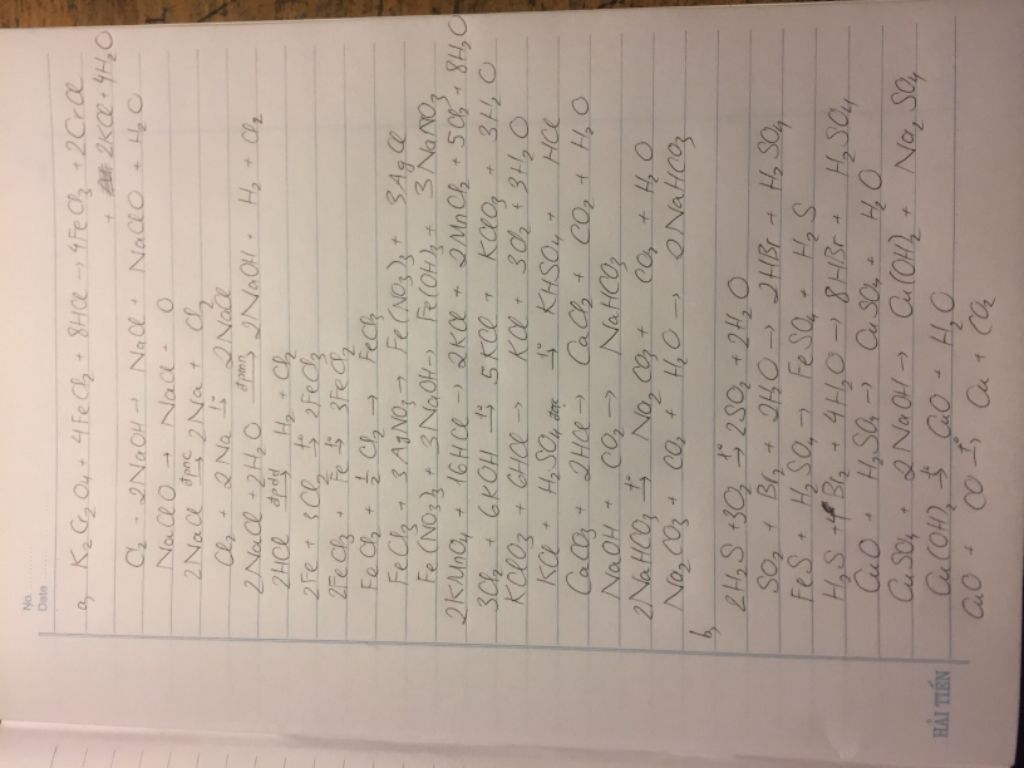 No.
Date
a, K₂Cr₂O₄ + 4FeCl₂ + 8HCl → 4FeCl₃ + 2CrCl
+ 2KCl + 4H₂O
Cl₂ + 2NaOH → NaCl + NaClO + H₂O
NaClO → NaCl + O
2NaCl đpnc→ 2Na + Cl₂
Cl₂ + 2Na t°→ 2NaCl
2NaCl + 2H₂O đpmn→ 2NaOH + H₂ + Cl₂
2HCl đpdd→ H₂ + Cl₂
2Fe + 3Cl₂ t°→ 2FeCl₃
2FeCl₃ + Fe t°→ 3FeCl₂
FeCl₂ + ½ Cl₂ → FeCl₃
FeCl₃ + 3AgNO₃ → Fe(NO₃)₃ + 3AgCl
Fe(NO₃)₃ + 3NaOH → Fe(OH)₃ + 3NaNO₃
2KMnO₄ + 16HCl → 2KCl + 2MnCl₂ + 5Cl₂ + 8H₂O
3Cl₂ + 6KOH t°→ 5KCl + KClO₃ + 3H₂O
KClO₃ + 6HCl → KCl + 3Cl₂ + 3H₂O
KCl + H₂SO₄ t°→ KHSO₄ + HCl
CaCO₃ + 2HCl → CaCl₂ + CO₂ + H₂O
NaOH + CO₂ → NaHCO₃
2NaHCO₃ t°→ Na₂CO₃ + CO₂ + H₂O
Na₂CO₃ + CO₂ + H₂O → 2NaHCO₃
b,
2H₂S + 3O₂ t°→ 2SO₂ + 2H₂O
SO₂ + Br₂ + 2H₂O → 2HBr + H₂SO₄
FeS + H₂SO₄ → FeSO₄ + H₂S
H₂S + 4Br₂ + 4H₂O → 8HBr + H₂SO₄
CuO + H₂SO₄ → CuSO₄ + H₂O
CuSO₄ + 2NaOH → Cu(OH)₂ + Na₂SO₄
Cu(OH)₂ t°→ CuO + H₂O
CuO + CO t°→ Cu + CO₂
HẢI TIẾN